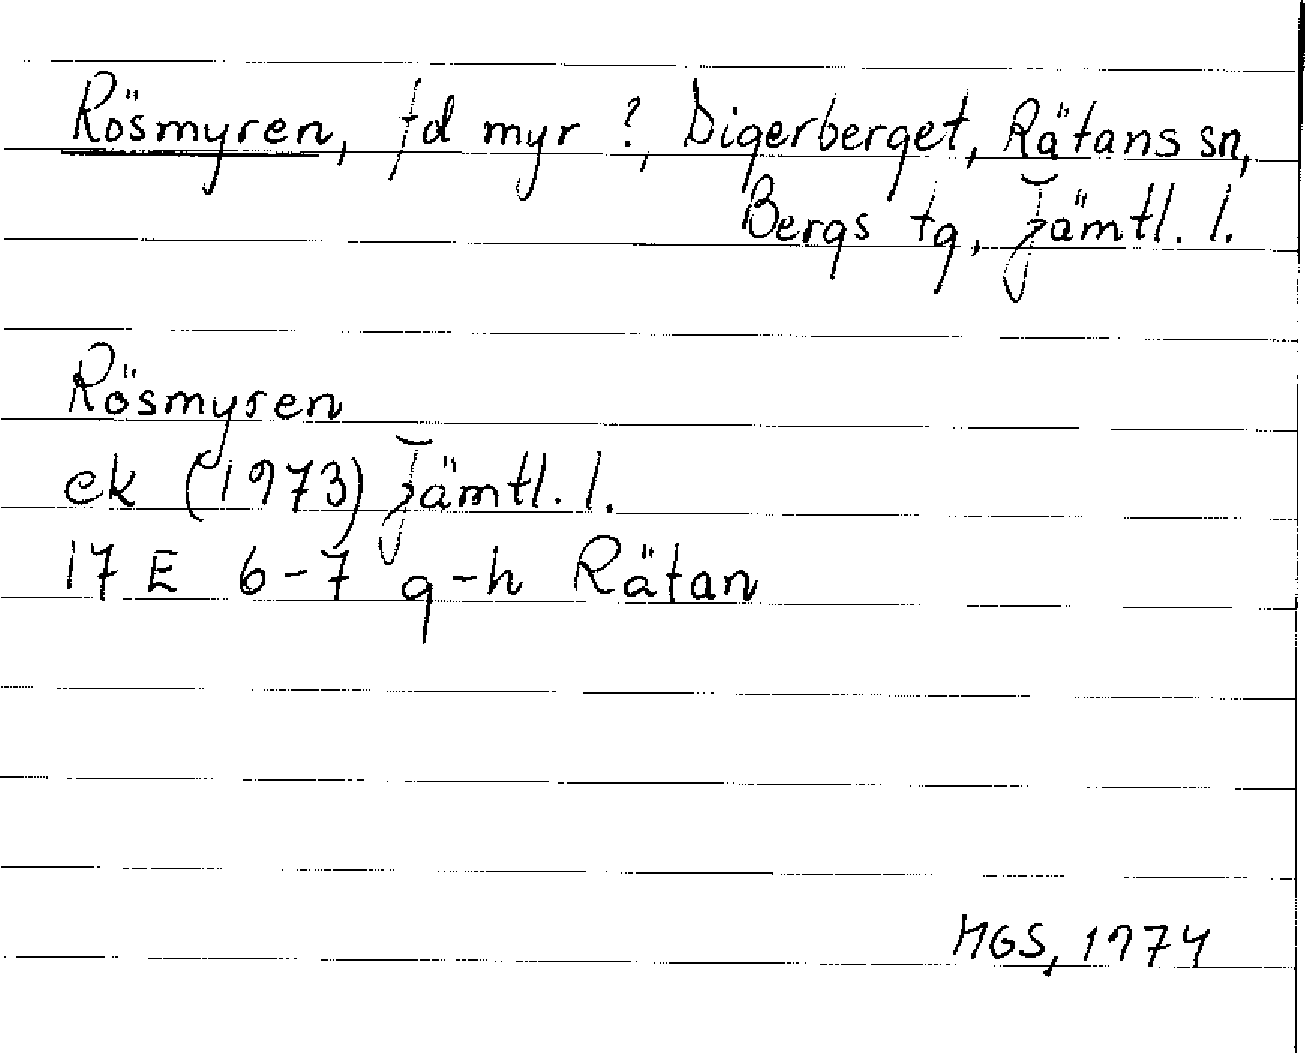 Rösmyren, fd myr ?, Digerberget, Rätans sn,
Bergs tg, Jämtl. l.
Rösmyren
ek (1973) Jämtl. l.
17 E 6-7 g-h Rätan
MGS, 1974